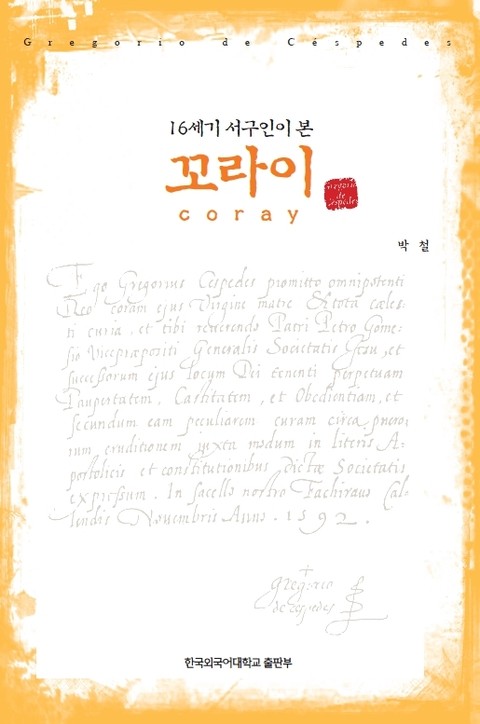 Gregorio de Céspedes
16세기 서구인이 본
꼬라이
Gregorio
de
Céspedes
coray
박 철
Ego Gregorius Cespedes promitto omnipotenti
Deo coram ejus Virgine matre & tota cæles-
ti curia, et tibi reverendo Patri Petro Gome-
sio Vicepræpositi Generalis Societatis Jesu, et
successorum ejus locum Dei tenenti perpetuam
Paupertatem, Castitatem, et Obedientiam, et
secundum eam peculiarem curam circa puero-
rum eruditionem juxta modum in literis A-
postolicis et constitutionibus dictæ Societatis
expressum. In sacello nostro Fachiraus Cal-
lendis Novembris Anno. 1592.
gregorio
de cespedes
한국외국어대학교 출판부